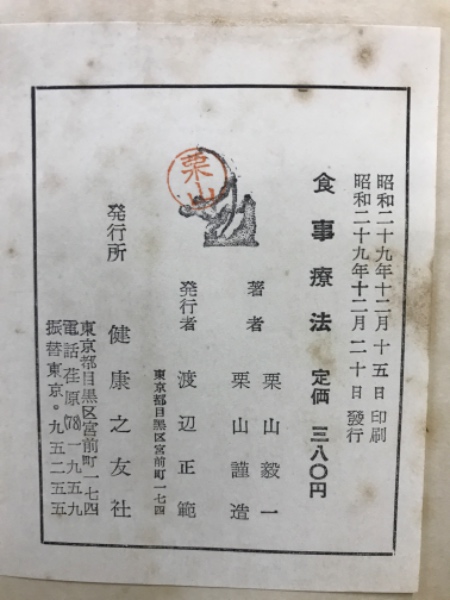 昭和二十九年十二月十五日印刷
昭和二十九年十二月二十日發行
食事療法 定価 三八〇円
著者 栗山毅一
栗山謹造
栗山
発行者 渡辺正範
東京都目黒区宮前町一七四
発行所 健康之友社
東京都目黒区宮前町一七四
電話荏原(78)一九五九
振替東京。九五二五五